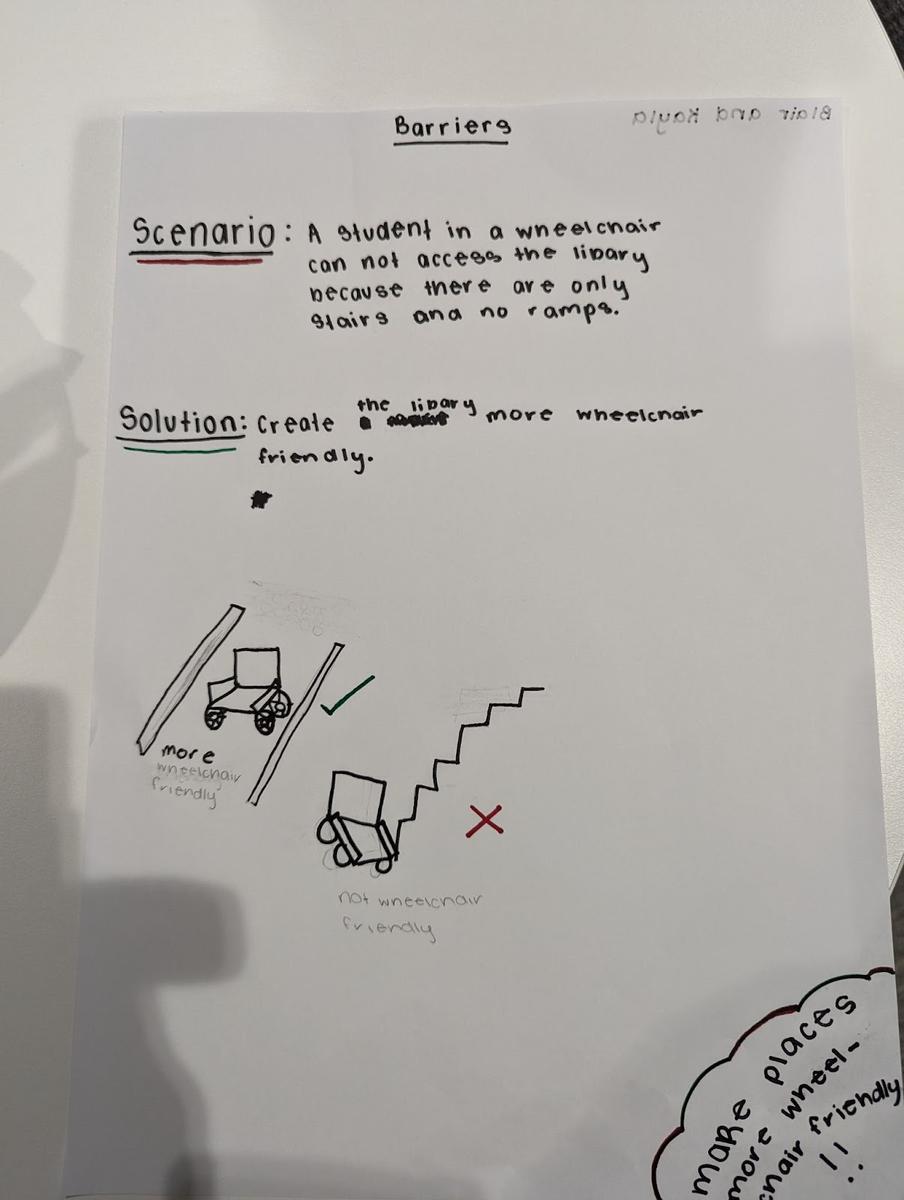 Barriers
Blair and Kayla
Scenario: A student in a wheelchair
can not access the libary
because there are only
stairs and no ramps.
the libary
Solution: Create more wheelchair
friendly.
more
wheelchair
friendly
not wheelchair
friendly
make places
more wheel-
chair friendly
!!